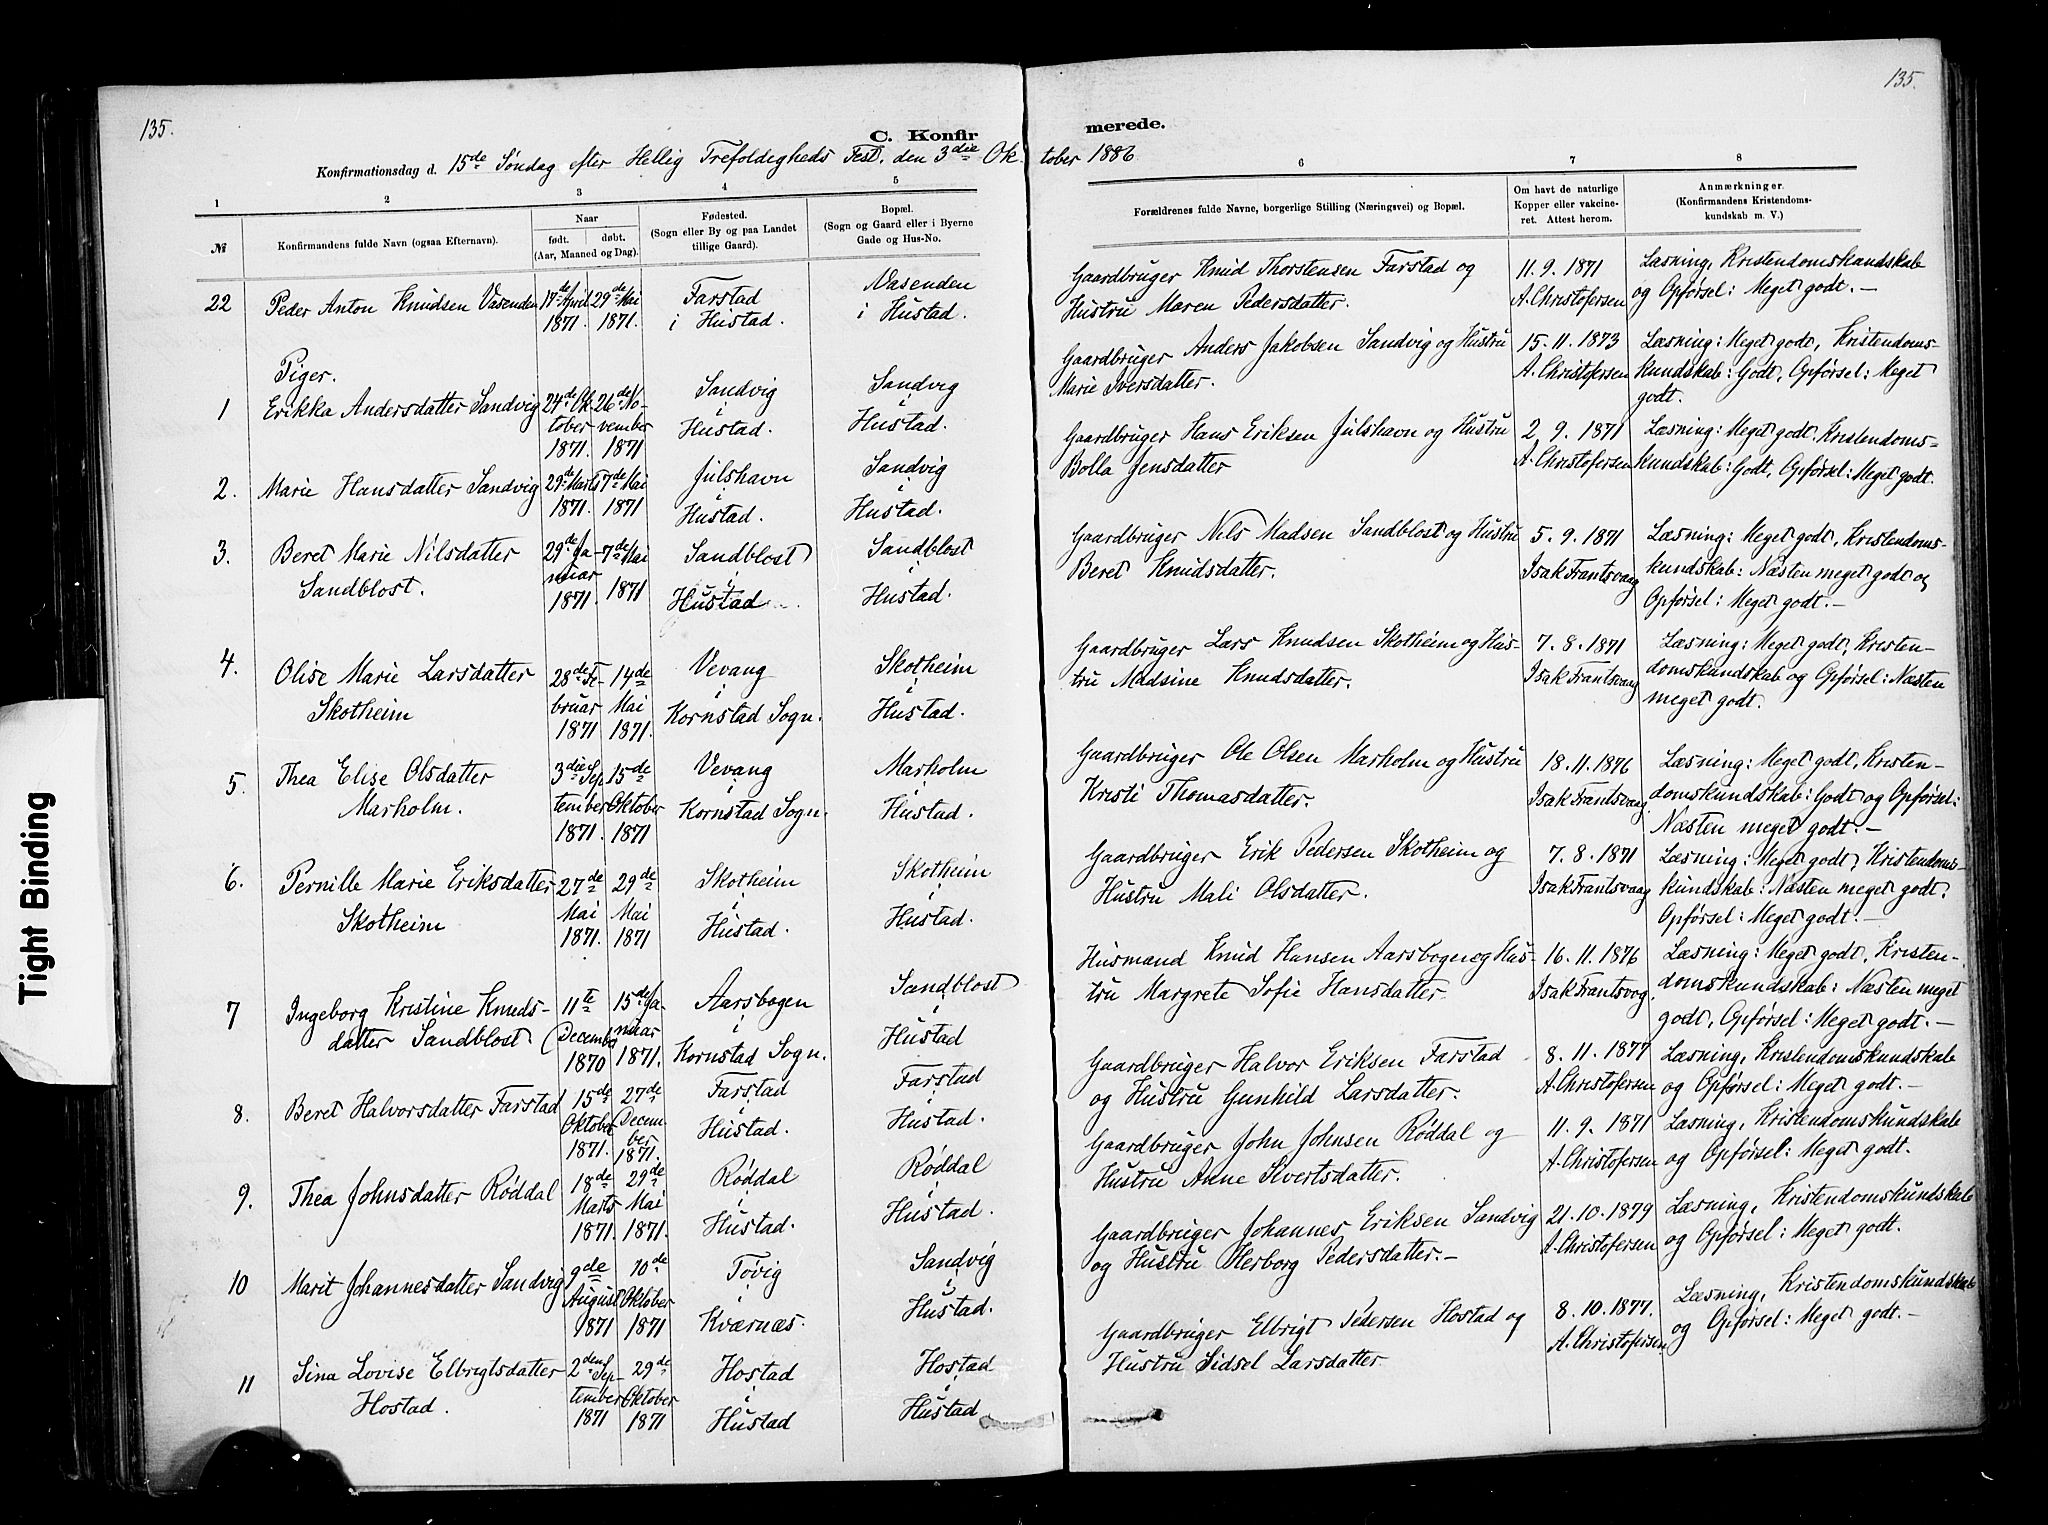 135.
135.
C. Konfir
merede.
Konfirmationsdag d. 15de Søndag efter Hellig Trefoldigheds Fest, den 3die Ok-
tober 1886
1 2 3 4 5
6 7 8
№
Konfirmandens fulde Navn (ogsaa Efternavn).
Naar
født. døbt.
(Aar, Maaned og Dag).
Fødested.
(Sogn eller By og paa Landet
tillige Gaard).
Bopæl.
(Sogn og Gaard eller i Byerne
Gade og Hus-No.
Forældrenes fulde Navne, borgerlige Stilling (Næringsvei) og Bopæl.
Om havt de naturlige
Kopper eller vakcine-
ret. Attest herom.
Anmærkninger.
(Konfirmandens Kristendoms-
kundskab m. V.)
22 Peder Anton Knudsen Vasenden 17de April 29de Mai Farstad Vasenden
1871. 1871. i Hustad. i Hustad.
Gaardbruger Knud Thorstensen Farstad og 11.9.1871 Læsning, Kristendomskundskab
Hustru Maren Pedersdatter. A. Christofersen og Opførsel: Meget godt. –
Piger.
1 Erikka Andersdatter Sandvig 24de Ok- 26de No- Sandvig Sandvig
tober vember i i
1871. 1871 Hustad. Hustad.
Gaardbruger Anders Jakobsen Sandvig og Hustru 15.11.1873 Læsning: Meget godt, Kristendoms-
Marie Iversdatter. A. Christofersen kundskab: Godt, Opførsel: Meget
godt.
2. Marie Hansdatter Sandvig 29de Marts 7de Mai Julshavn Sandvig
1871. 1871 i i
Hustad. Hustad.
Gaardbruger Hans Eriksen Julshavn og Hustru 2.9.1871 Læsning: Meget godt, Kristendoms-
Bolla Jensdatter A. Christofersen kundskab: Godt, Opførsel: Meget godt.
3. Beret Marie Nilsdatter 29de Ja- 7de Mai Sandblost Sandblost
Sandblost. nuar 1871 i i
1871. Hustad. Hustad.
Gaardbruger Nels Madsen Sandblost og Hustru 5.9.1871 Læsning: Meget godt, Kristendoms-
Beret Knudsdatter. Isak Frantsvaag kundskab: Næsten meget godt og
Opførsel: Meget godt. –
4. Olise Marie Larsdatter 28de Fe- 14de Vevang Skotheim
Skotheim bruar Mai i i
1871 1871. Kornstad Sogn. Hustad.
Gaardbruger Lars Knudsen Skotheim og Hus- 7.8.1871 Læsning: Meget godt, Kristen-
tru Madsine Knudsdatter. Isak Frantsvaag domskundskab og Opførsel: Næsten
meget godt.
5. Thea Elise Olsdatter 3die Sep 15de Vevang Marholm
Marholm. tember Oktober i i
1871. 1871 Kornstad Sogn. Hustad.
Gaardbruger Ole Olsen Marholm og Hustru 18.11.1876 Læsning: Meget godt, Kristen-
Kristi Thomasdatter. Isak Frantsvaag domskundskab: Godt og Opførsel:
Næsten meget godt. –
6. Pernille Marie Eriksdatter 27de 29de Skotheim Skotheim
Skotheim Mai Mai i i
1871. 1871 Hustad. Hustad.
Gaardbruger Erik Pedersen Skotheim og 7.8.1871 Læsning: Meget godt, Kristendoms-
Hustru Mali Olsdatter. Isak Frantsvaag kundskab: Næsten meget godt.
Opførsel: Meget godt. –
7 Ingeborg Kristine Knuds- 11te 15de Ja- Aarsbogen Sandblost
datter Sandblost (Decemb. nuar i i
1870 1871. Kornstad Sogn. Hustad
Husmand Knud Hansen Aarsbogen og Hus- 16.11.1876 Læsning: Meget godt, Kristen-
tru Margrete Sofie Hansdatter Isak Frantsvog. domskundskab: Næsten meget
godt, Opførsel: Meget godt. –
8. Beret Halvorsdatter Farstad 15de 27de Farstad Farstad
Oktober (Decem- i i
1871. ber Hustad. Hustad.
1871.
Gaardbruger Halvor Eriksen Farstad 8.11.1877 Læsning, Kristendomskundskab
og Hustru Gunhild Larsdatter. A. Christofersen og Opførsel: Meget godt. –
9. Thea Johnsdatter Røddal 18de 29de Røddal Røddal
Marts Mai i i
1871. 1871. Hustad. Hustad.
Gaardbruger John Johnsen Røddal og 11.9.1871 Læsning, Kristendomskundskab
Hustru Anne Sivertsdatter. A. Christofersen og Opførsel: Meget godt.
10 Marit Johannesdatter Sandvig 9de 10de Tøvig Sandvig
August Oktober i i
1871 1871 Kværnæs. Hustad.
Gaardbruger Johannes Eriksen Sandvig 21.10.1879 Læsning, Kristendomskundskab
og Hustru Herborg Pedersdatter. – A. Christofersen og Opførsel: Meget godt.
11 Sina Lovise Elbrigtsdatter 2den Sep- 29de Hostad Hostad
Hostad. tember Oktober i i
1871 1871 Hustad Hustad
Gaardbruger Elbrigt Pedersen Hostad og 8.10.1877. Læsning, Kristendomskundskab
Hustru Sidsel Larsdatter. A. Christofersen og Opførsel: Meget godt. –
Tight Binding